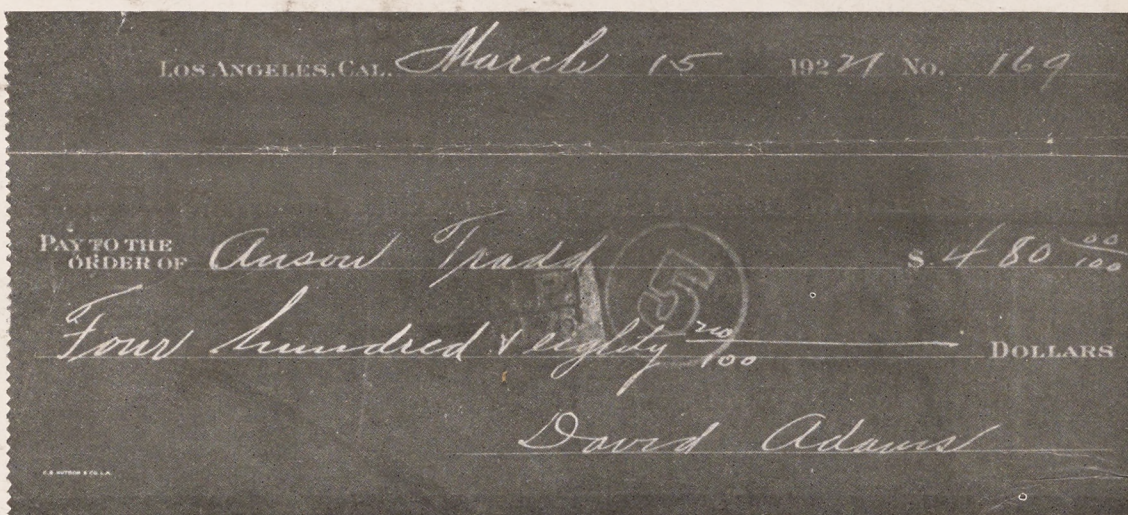 LOS ANGELES, CAL. March 15 192 No. 169
PAY TO THE
ORDER OF Anson Tradd $ 480 00/100
5
Four hundred & eighty no/100 DOLLARS
David Adams
& CO. L.A.